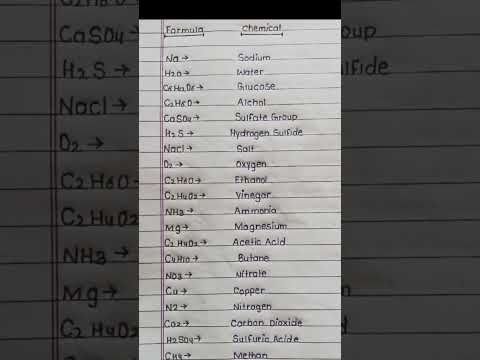 Formula Chemical
Na → Sodium
H2O → Water
C6H12O6 → Glucose
C2H6O → Alchol
CaSO4 → Sulfate Group
H2S → Hydrogen Sulfide
Nacl → Salt
O2 → Oxygen
C2H6O → Ethanol
C2H4O2 → Vinegar
NH3 → Ammonia
Mg → Magnesium
C2H4O2 → Acetic Acid
C4H10 → Butane
NO3 → Nitrate
Cu → Copper
N2 → Nitrogen
CO2 → Carbon Dioxide
H2SO4 → Sulfuric Acide
CH4 → Methan